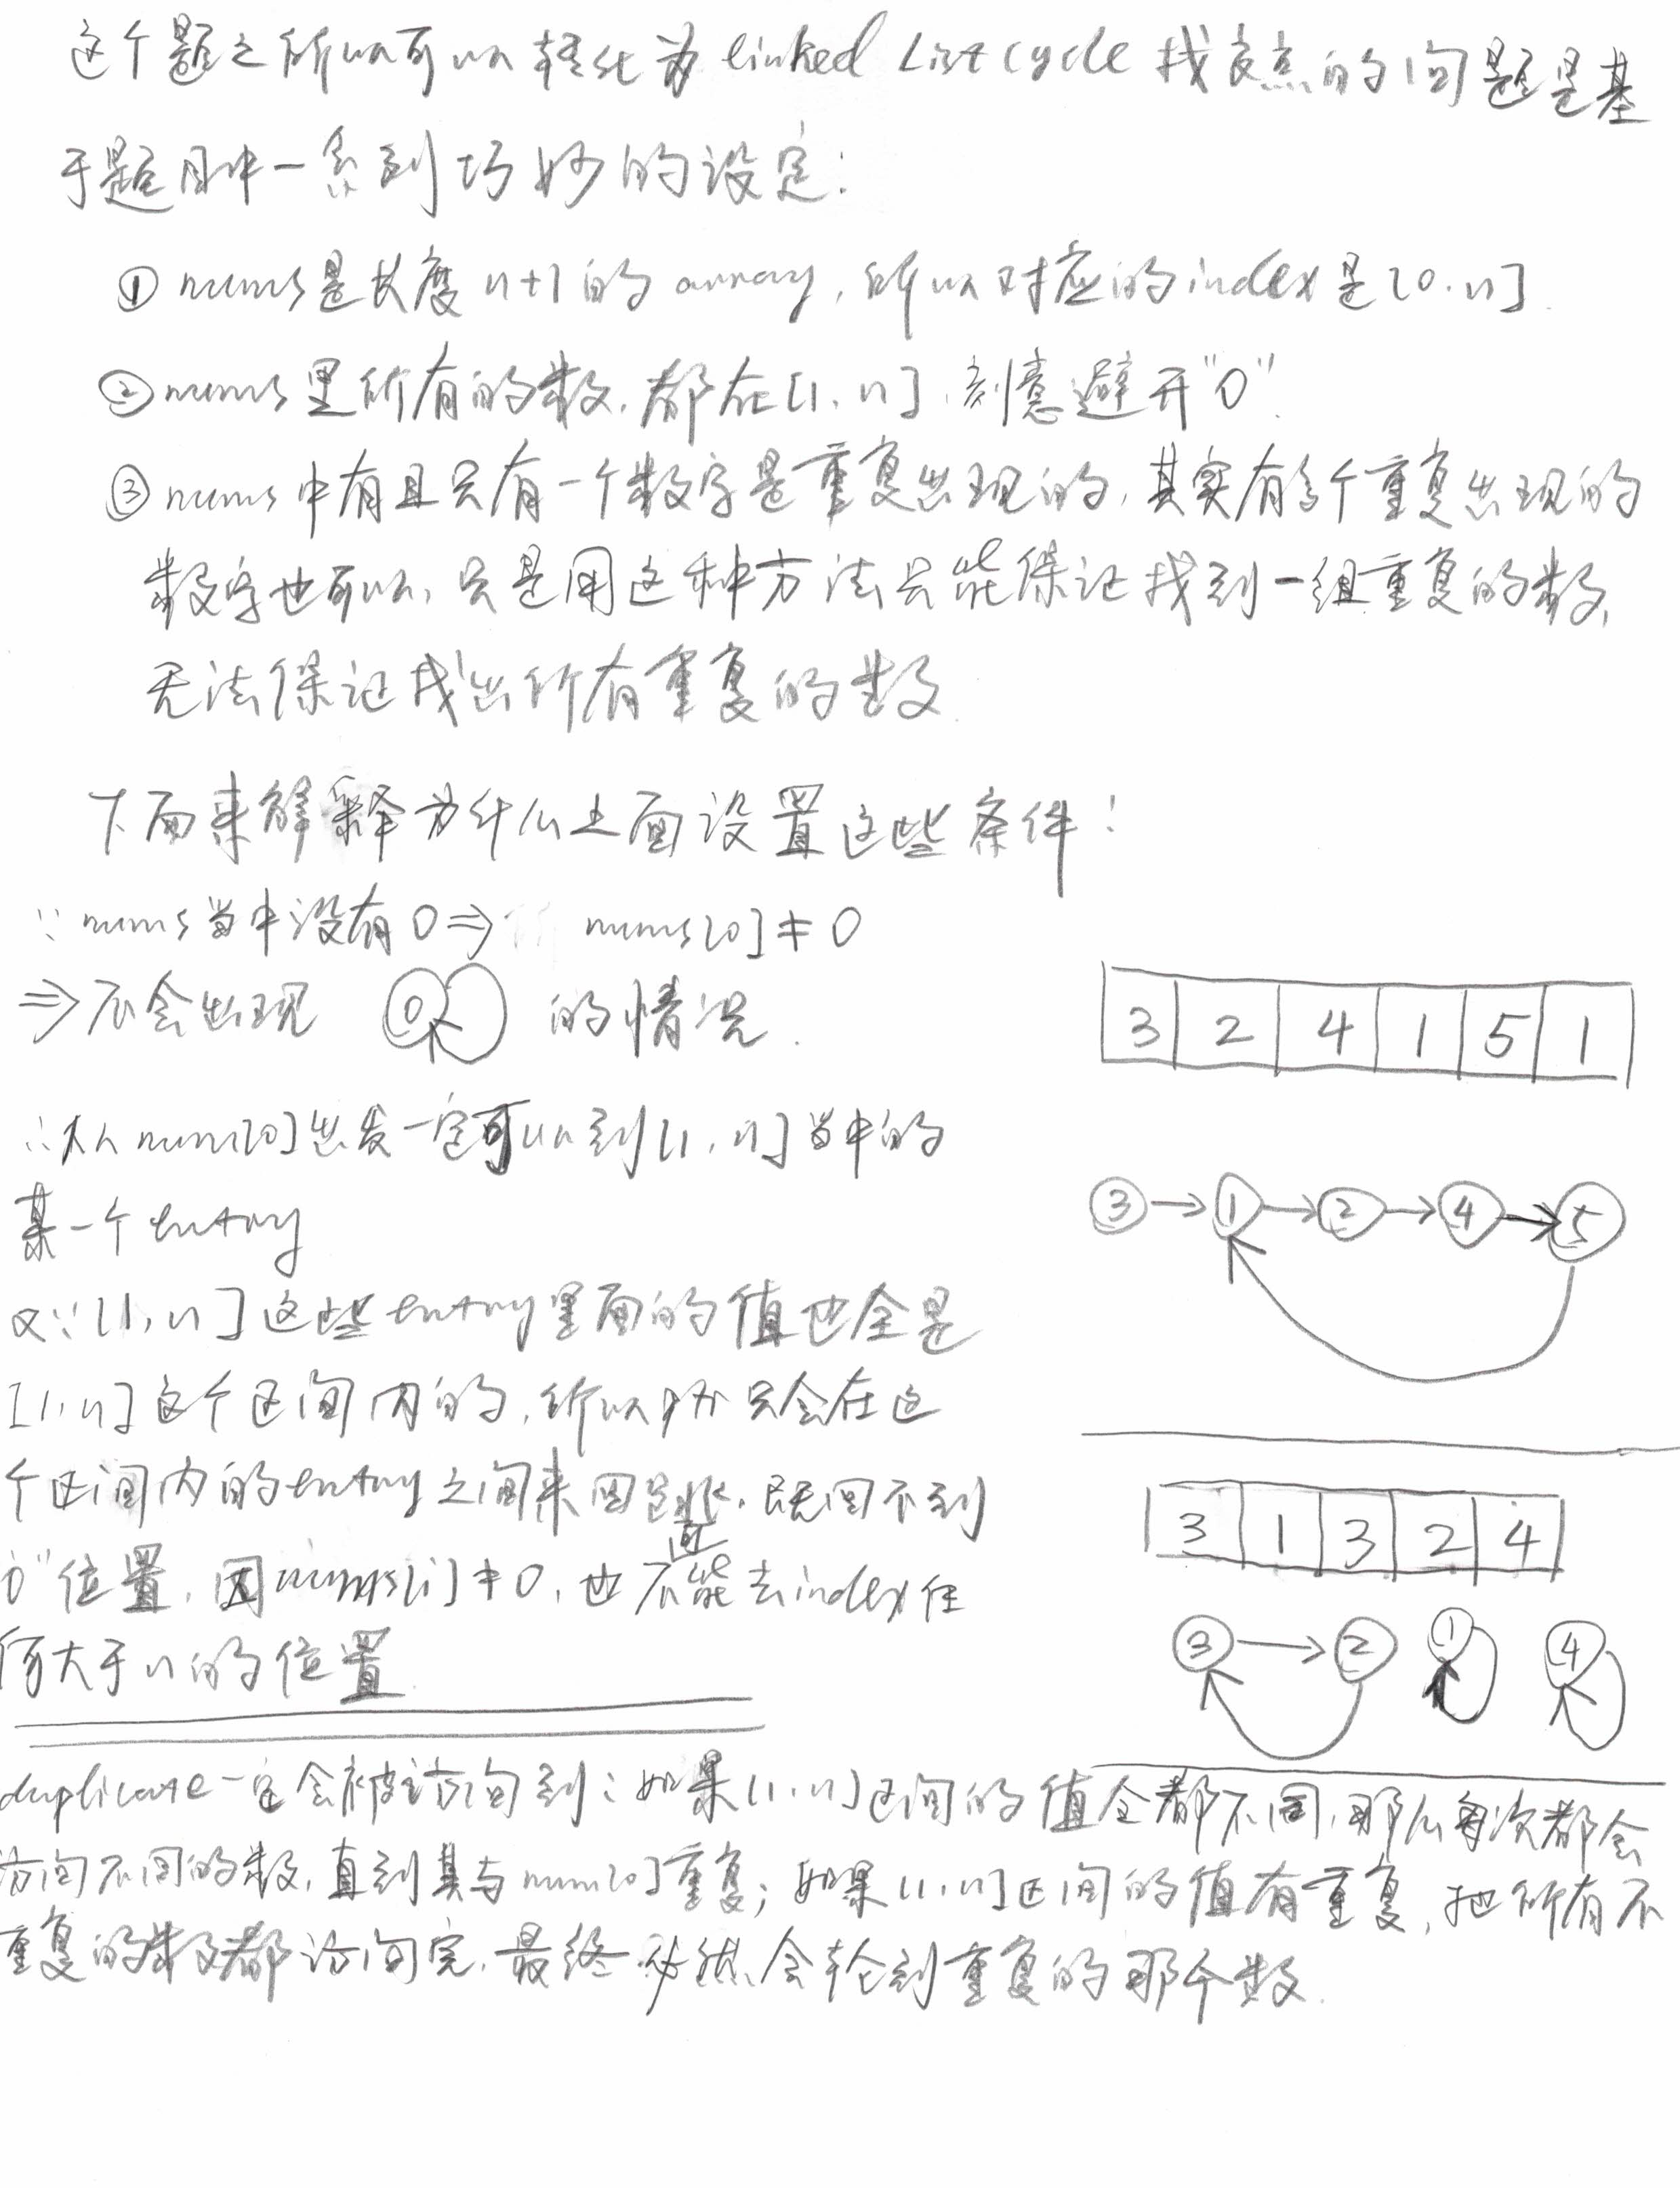 这个题之所以可以转化为 linked List cycle 找交点的问题是基
于题目中一系列巧妙的设定:
① nums是长度 n+1 的 array, 所以对应的index是[0, n].
② nums里所有的数, 都在[1, n], 刻意避开"0".
③ nums中有且只有一个数字是重复出现的, 其实有多个重复出现的
数字也可以, 只是用这种方法只能保证找到一组重复的数,
无法保证找出所有重复的数.
下面来解释为什么上面设置这些条件:
∵ nums当中没有 0 ⇒ nums[0] ≠ 0
⇒ 不会出现 0 的情况.
∴从 nums[0]出发一定可以到[1, n]当中的
某一个 entry
又∵ [1, n] 这些entry里面的值也全是
[1, n] 这个区间内的, 所以 只会在这
个区间内的entry之间来回跳, 既回不到
"0"位置, 因nums[i] ≠ 0, 也不可能去index任
何大于n的位置.
3 2 4 1 5 1
3 → 1 → 2 → 4 → 5
3 1 3 2 4
3 → 2 1 4
duplicate一定会被访问到: 如果[1, n]区间的值全都不同, 那么每次都会
访问不同的数, 直到其与nums[0]重复; 如果[1, n]区间的值有重复, 把所有不
重复的数都访问完, 最终必然会轮到重复的那个数.